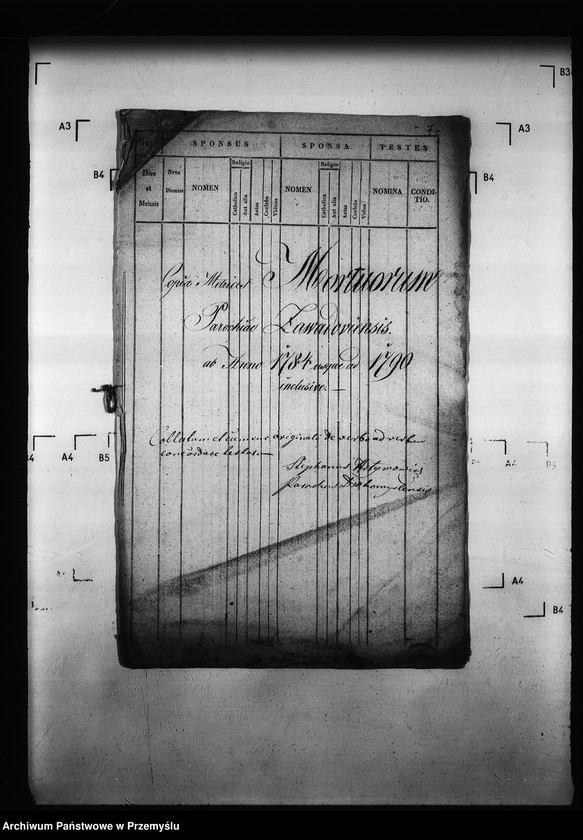 7.
SPONSUS SPONSA TESTES
Dies et Mensis
Nrus Domus
NOMEN
Religio
Catholica
Aut alia
Aetas
Coelebs
Viduus
NOMEN
Religio
Catholica
Aut alia
Aetas
Coelebs
Vidua
NOMINA
CONDI-
TIO.
Copia Metrices Mortuorum
Parochiae Zawadoviensis.
ab Anno 1784 usque ad 1790
inclusive. —
Collatum et cum originali de verbo ad verbum
concordare testor. —
Stephanus
Parochus
A3
B3
A3
B4
B4
A4
B5
A4
B4
Archiwum Państwowe w Przemyślu